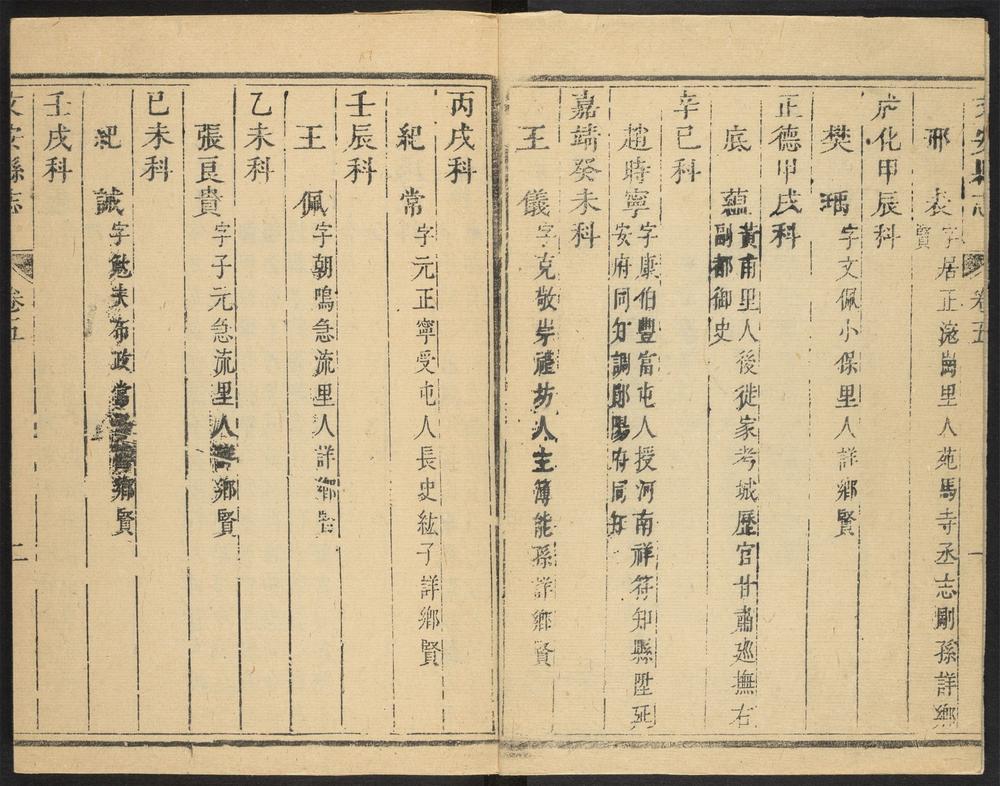 文安縣志 卷五 一
邢表 字居正滱崗里人苑馬寺丞志剛孫詳鄉
賢
成化甲辰科
樊瑀 字文佩小保里人詳鄉賢
正德甲戌科
底蘊 黃甫里人後徙家考城歷官甘肅巡撫右
副都御史
辛巳科
趙時寧 字康伯豐富屯人授河南祥符知縣陞延
安府同知調鄖陽府同知
嘉靖癸未科
王儀 字克敬崇禮坊人主薄能孫詳鄉賢
丙戌科
紀常 字元正寧受屯人長史紘子詳鄉賢
壬辰科
王佩 字朝鳴急流里人詳鄉賢
乙未科
張良貴 字子元急流里人 鄉賢
己未科
紀誠 字勉夫布政 鄉賢
壬戌科
文安縣志 卷五 二